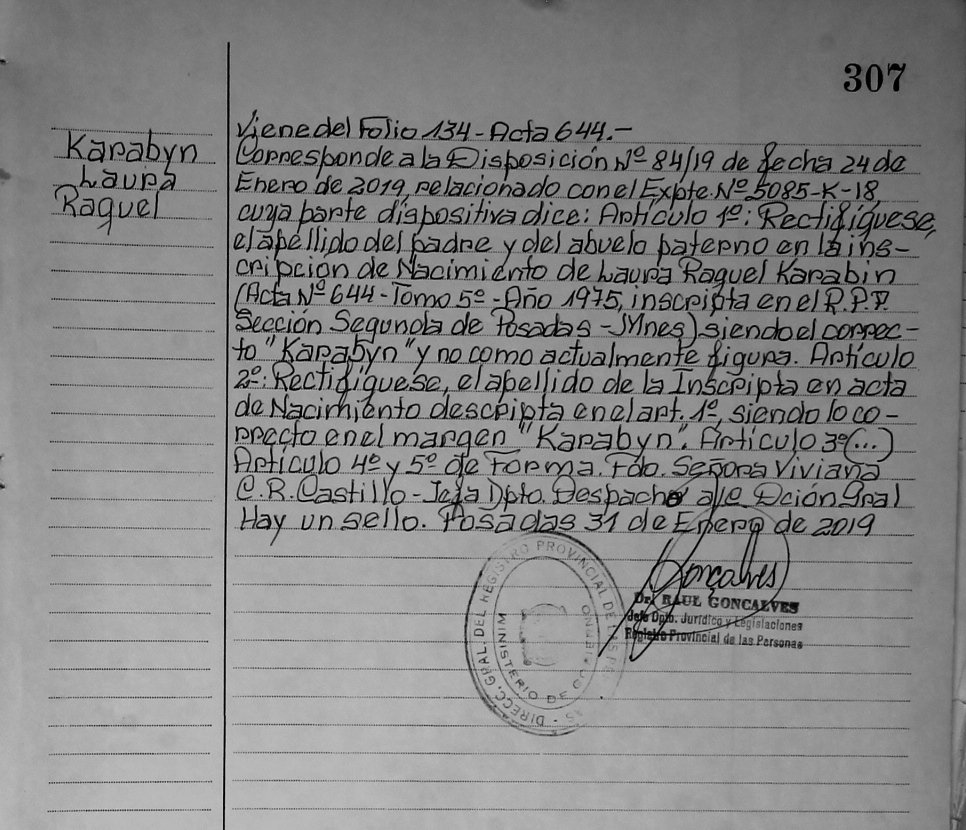 307
Karabyn
Laura
Raquel
Viene del Folio 134 - Acta 644.-
Corresponde a la Disposición Nº 84/19 de fecha 24 de
Enero de 2019, relacionado con el Expte. Nº 5085-K-18,
cuya parte dispositiva dice: Artículo 1º: Rectifíquese,
el apellido del padre y del abuelo paterno en la ins-
cripción de Nacimiento de Laura Raquel Karabin
(Acta Nº 644 - Tomo 5º - Año 1975, inscripta en el R.P.P.
Sección Segunda de Posadas - Mnes) siendo el correc-
to "Karabyn" y no como actualmente figura. Artículo
2º: Rectifíquese, el apellido de la Inscripta en acta
de Nacimiento descripta en el art. 1º, siendo lo co-
rrecto en el margen "Karabyn". Artículo 3º (...)
Artículo 4º y 5º de Forma. Fdo. Señora Viviana
C.R. Castillo - Jefa Dpto. Despacho a/c Dción Gral
Hay un sello. Posadas 31 de Enero de 2019
Goncalves
Dr. RAUL GONCALVES
Jefe Dpto. Jurídico y Legislaciones
Registro Provincial de las Personas
DIRECC. GRAL. DEL REGISTRO PROVINCIAL DE LAS
MINISTERIO DE GOBIERNO